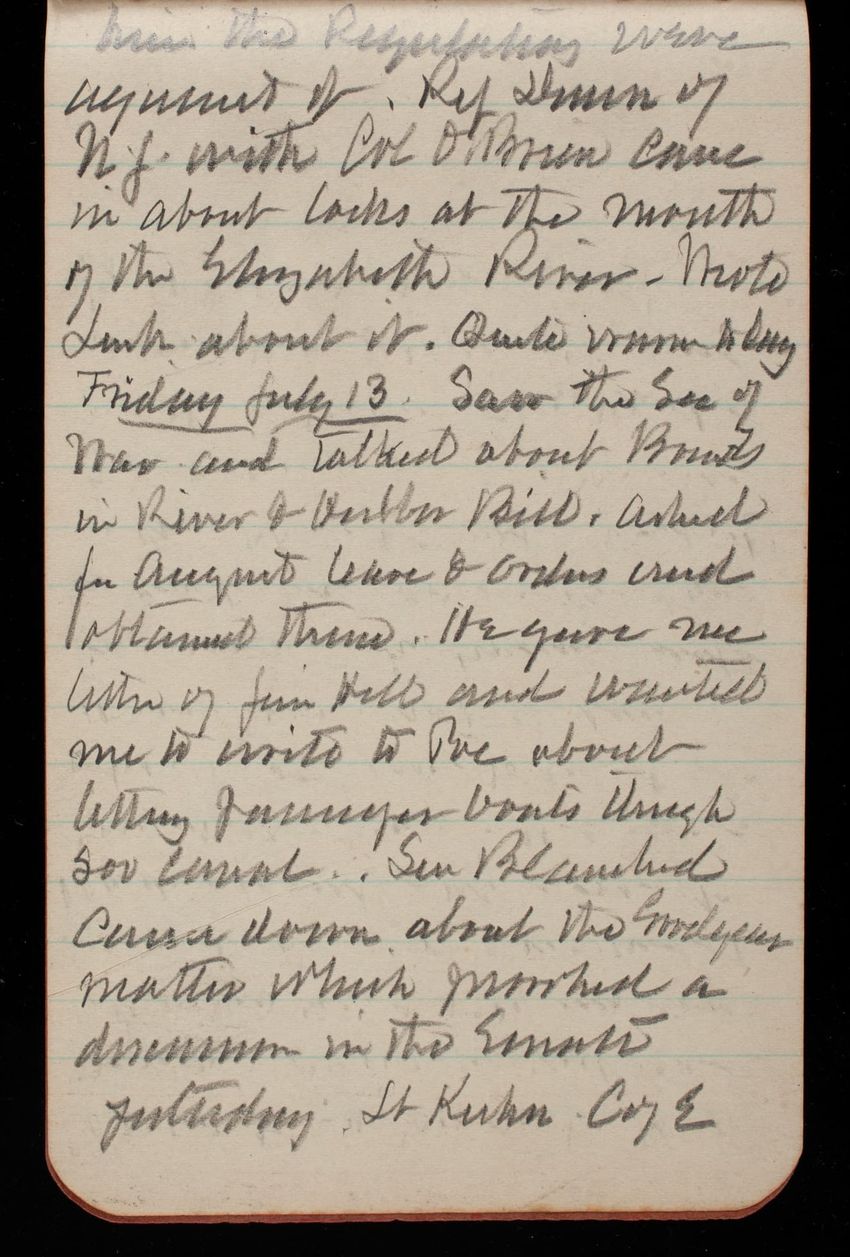 him the Regulations were
against it. Rep Dunn of
N.J. with Col O'Brien came
in about locks at the mouth
of the Elizabeth River - Wrote
about it. Quite warm today
Friday July 13. Saw the Sec of
War and talked about
in River & Harbor Bill. Asked
for August leave & orders and
obtained them. He gave me
letter of Jim Hill and wanted
me to write to Poe about
letting passenger boats through
Soo Canal.. Sen Blanchard
came down about the Goodyear
matter which provoked a
discussion in the Senate
yesterday. Lt Kuhn Coy E